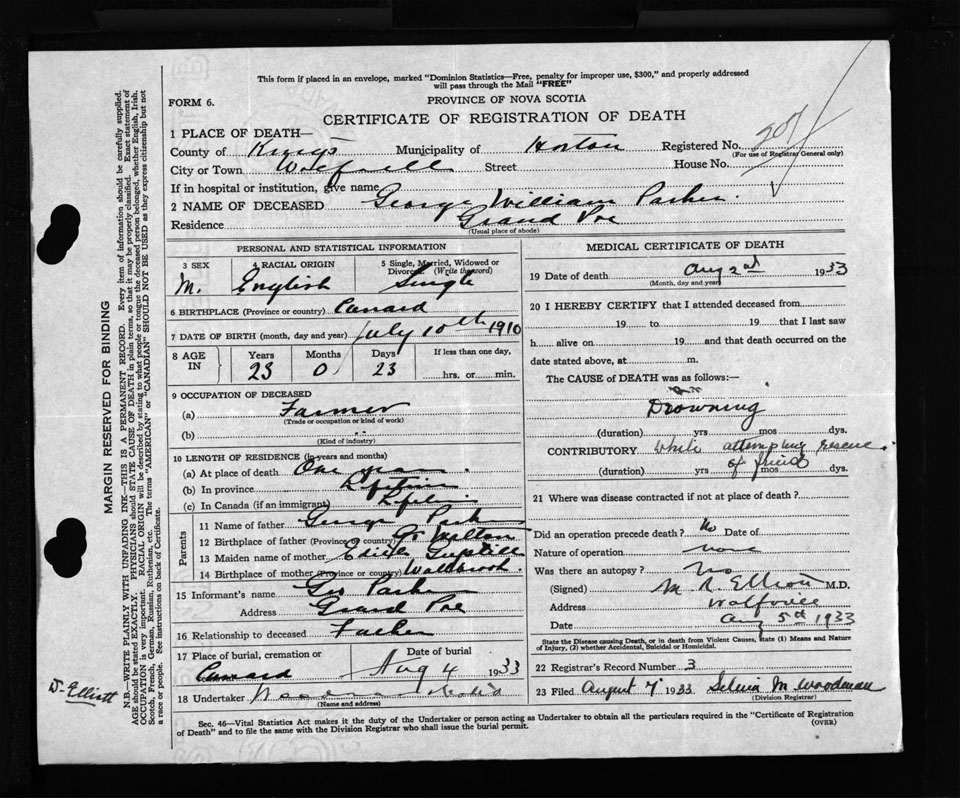 This form if placed in an envelope, marked "Dominion Statistics—Free, penalty for improper use, $300," and properly addressed
will pass through the Mail "FREE"
FORM 6.
PROVINCE OF NOVA SCOTIA
CERTIFICATE OF REGISTRATION OF DEATH
1 PLACE OF DEATH—
County of Kings Municipality of Horton Registered No.
(For use of Registrar General only)
City or Town Wolfville Street House No.
If in hospital or institution, give name
2 NAME OF DECEASED George William Parker
Residence Grand Pre
(Usual place of abode)
PERSONAL AND STATISTICAL INFORMATION
3 SEX 4 RACIAL ORIGIN 5 Single, Married, Widowed or Divorced (Write the word)
M. English Single
6 BIRTHPLACE (Province or country) Canard
7 DATE OF BIRTH (month, day and year) July 10th 1910
8 AGE IN Years Months Days If less than one day,
23 0 23 hrs. or min.
9 OCCUPATION OF DECEASED
(a) Farmer
(Trade or occupation or kind of work)
(b)
(Kind of industry)
10 LENGTH OF RESIDENCE (in years and months)
(a) At place of death One year
(b) In province Lifetime
(c) In Canada (if an immigrant) Lifetime
Parents
11 Name of father George Parker
12 Birthplace of father (Province or country)
13 Maiden name of mother
14 Birthplace of mother (Province or country) Wallbrook
15 Informant's name Geo Parker
Address Grand Pre
16 Relationship to deceased Father
17 Place of burial, cremation or Date of burial
Canard Aug 4 1933
18 Undertaker
(Name and address)
MEDICAL CERTIFICATE OF DEATH
19 Date of death Aug 2nd 1933
(Month, day and year)
20 I HEREBY CERTIFY that I attended deceased from
19 to 19 that I last saw
h alive on 19 and that death occurred on the
date stated above, at m.
The CAUSE of DEATH was as follows:—
Drowning
(duration) yrs mos dys.
CONTRIBUTORY While attempting rescue
of friend
(duration) yrs mos dys.
21 Where was disease contracted if not at place of death?
Did an operation precede death? No Date of
Nature of operation none
Was there an autopsy? No
(Signed) M. R. Elliott M.D.
Address Wolfville
Date Aug 5th 1933
State the Disease causing Death, or in death from Violent Causes, state (1) Means and Nature
of Injury, (2) whether Accidental, Suicidal or Homicidal.
22 Registrar's Record Number 3
23 Filed August 7 1933 Selina M Woodman
(Division Registrar)
Sec. 46—Vital Statistics Act makes it the duty of the Undertaker or person acting as Undertaker to obtain all the particulars required in the "Certificate of Registration
of Death" and to file the same with the Division Registrar who shall issue the burial permit.
(OVER)
MARGIN RESERVED FOR BINDING
N.B.—WRITE PLAINLY WITH UNFADING INK—THIS IS A PERMANENT RECORD. Every item of information should be carefully supplied.
AGE should be stated EXACTLY. PHYSICIANS should STATE CAUSE OF DEATH in plain terms, so that it may be properly classified. Exact statement of
OCCUPATION is very important. RACIAL ORIGIN will be described by stating to what people or tongue the deceased person belonged, whether English, Irish,
Scotch, French, German, Russian, Ruthenian, etc. The terms "AMERICAN" or "CANADIAN" SHOULD NOT BE USED as they express citizenship but not
a race or people. See instructions on back of Certificate.
Dr Elliott